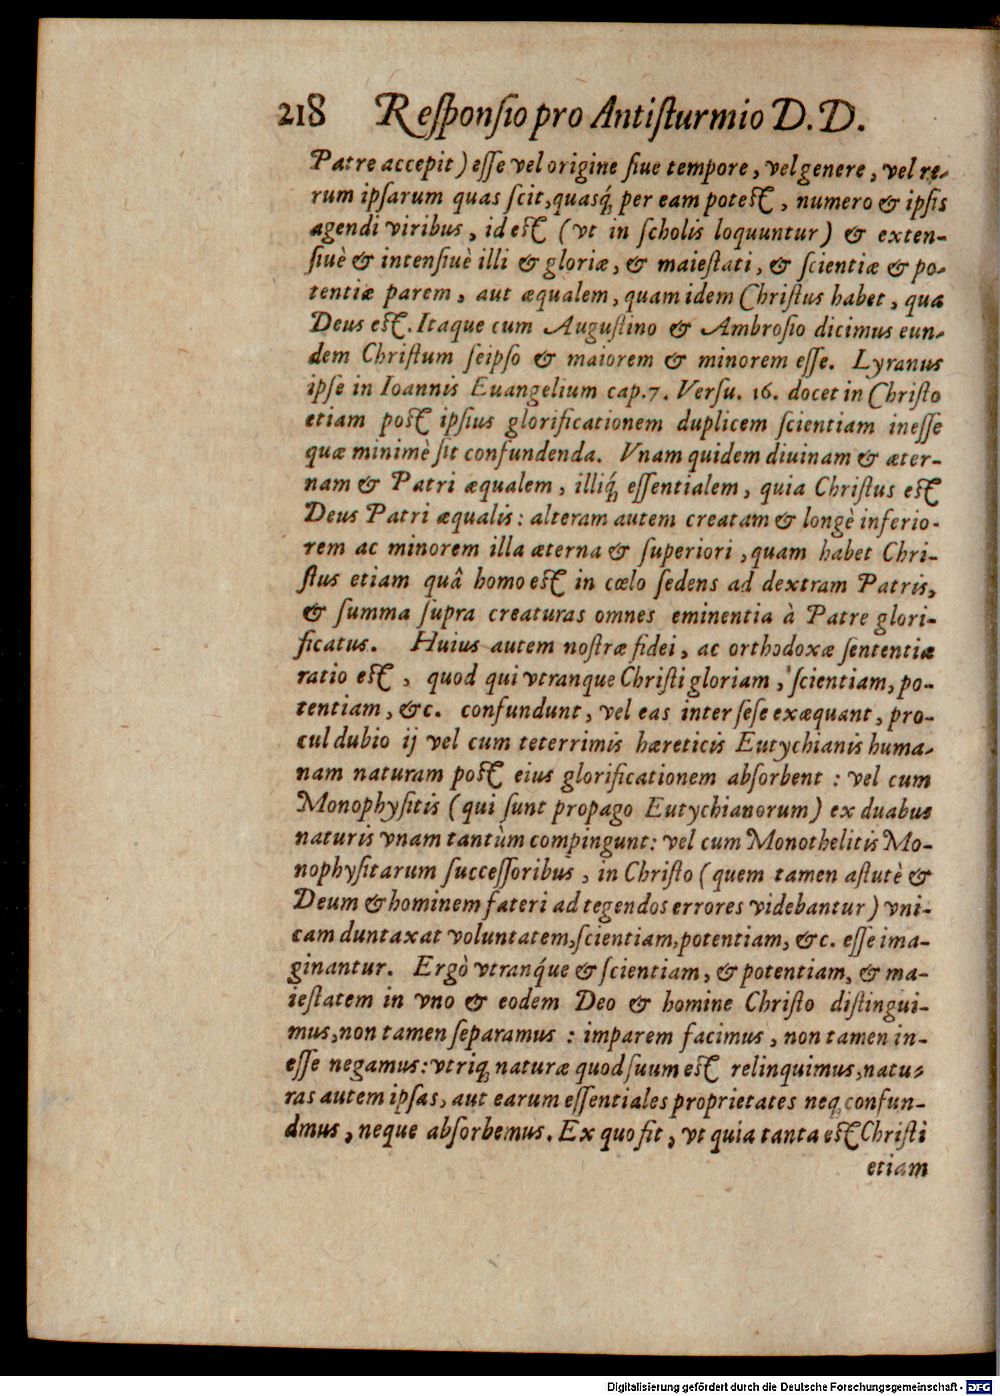 218 Reſponſio pro Antiſturmio D. D.
Patre accepit) eſſe vel origine ſiue tempore, vel genere, vel re-
rum ipſarum quas ſcit, quasq́; per eam poteſt, numero & ipſis
agendi viribus, id eſt (vt in ſcholis loquuntur) & exten-
ſiuè & intenſiuè illi & gloriæ, & maieſtati, & ſcientiæ & po-
tentiæ parem, aut æqualem, quam idem Chriſtus habet, qua
Deus eſt. Itaque cum Auguſtino & Ambroſio dicimus eun-
dem Chriſtum ſeipſo & maiorem & minorem eſſe. Lyranus
ipſe in Ioannis Euangelium cap. 7. Verſu. 16. docet in Chriſto
etiam poſt ipſius glorificationem duplicem ſcientiam ineſſe
quæ minimè ſit confundenda. Vnam quidem diuinam & æter-
nam & Patri æqualem, illiq́; eſſentialem, quia Chriſtus eſt
Deus Patri æqualis: alteram autem creatam & longè inferio-
rem ac minorem illa æterna & ſuperiori, quam habet Chri-
ſtus etiam quâ homo eſt in cœlo ſedens ad dextram Patris,
& ſumma ſupra creaturas omnes eminentia à Patre glori-
ficatus. Huius autem noſtræ fidei, ac orthodoxæ ſententiæ
ratio eſt, quod qui vtranque Chriſti gloriam, ſcientiam, po-
tentiam, &c. confundunt, vel eas inter ſeſe exæquant, pro-
cul dubio ij vel cum teterrimis hæreticis Eutychianis huma-
nam naturam poſt eius glorificationem abſorbent: vel cum
Monophyſitis (qui ſunt propago Eutychianorum) ex duabus
naturis vnam tantùm compingunt: vel cum Monothelitis Mo-
nophyſitarum ſucceſſoribus, in Chriſto (quem tamen aſtutè &
Deum & hominem fateri ad tegendos errores videbantur) vni-
cam duntaxat voluntatem, ſcientiam, potentiam, &c. eſſe ima-
ginantur. Ergò vtranq́ue & ſcientiam, & potentiam, & ma-
ieſtatem in vno & eodem Deo & homine Chriſto diſtingui-
mus, non tamen ſeparamus: imparem facimus, non tamen in-
eſſe negamus: vtriq; naturæ quod ſuum eſt relinquimus, natu-
ras autem ipſas, aut earum eſſentiales proprietates neq; confun-
dmus, neque abſorbemus. Ex quo fit, vt quia tanta eſt Chriſti
etiam
Digitalisierung gefördert durch die Deutsche Forschungsgemeinschaft - DFG